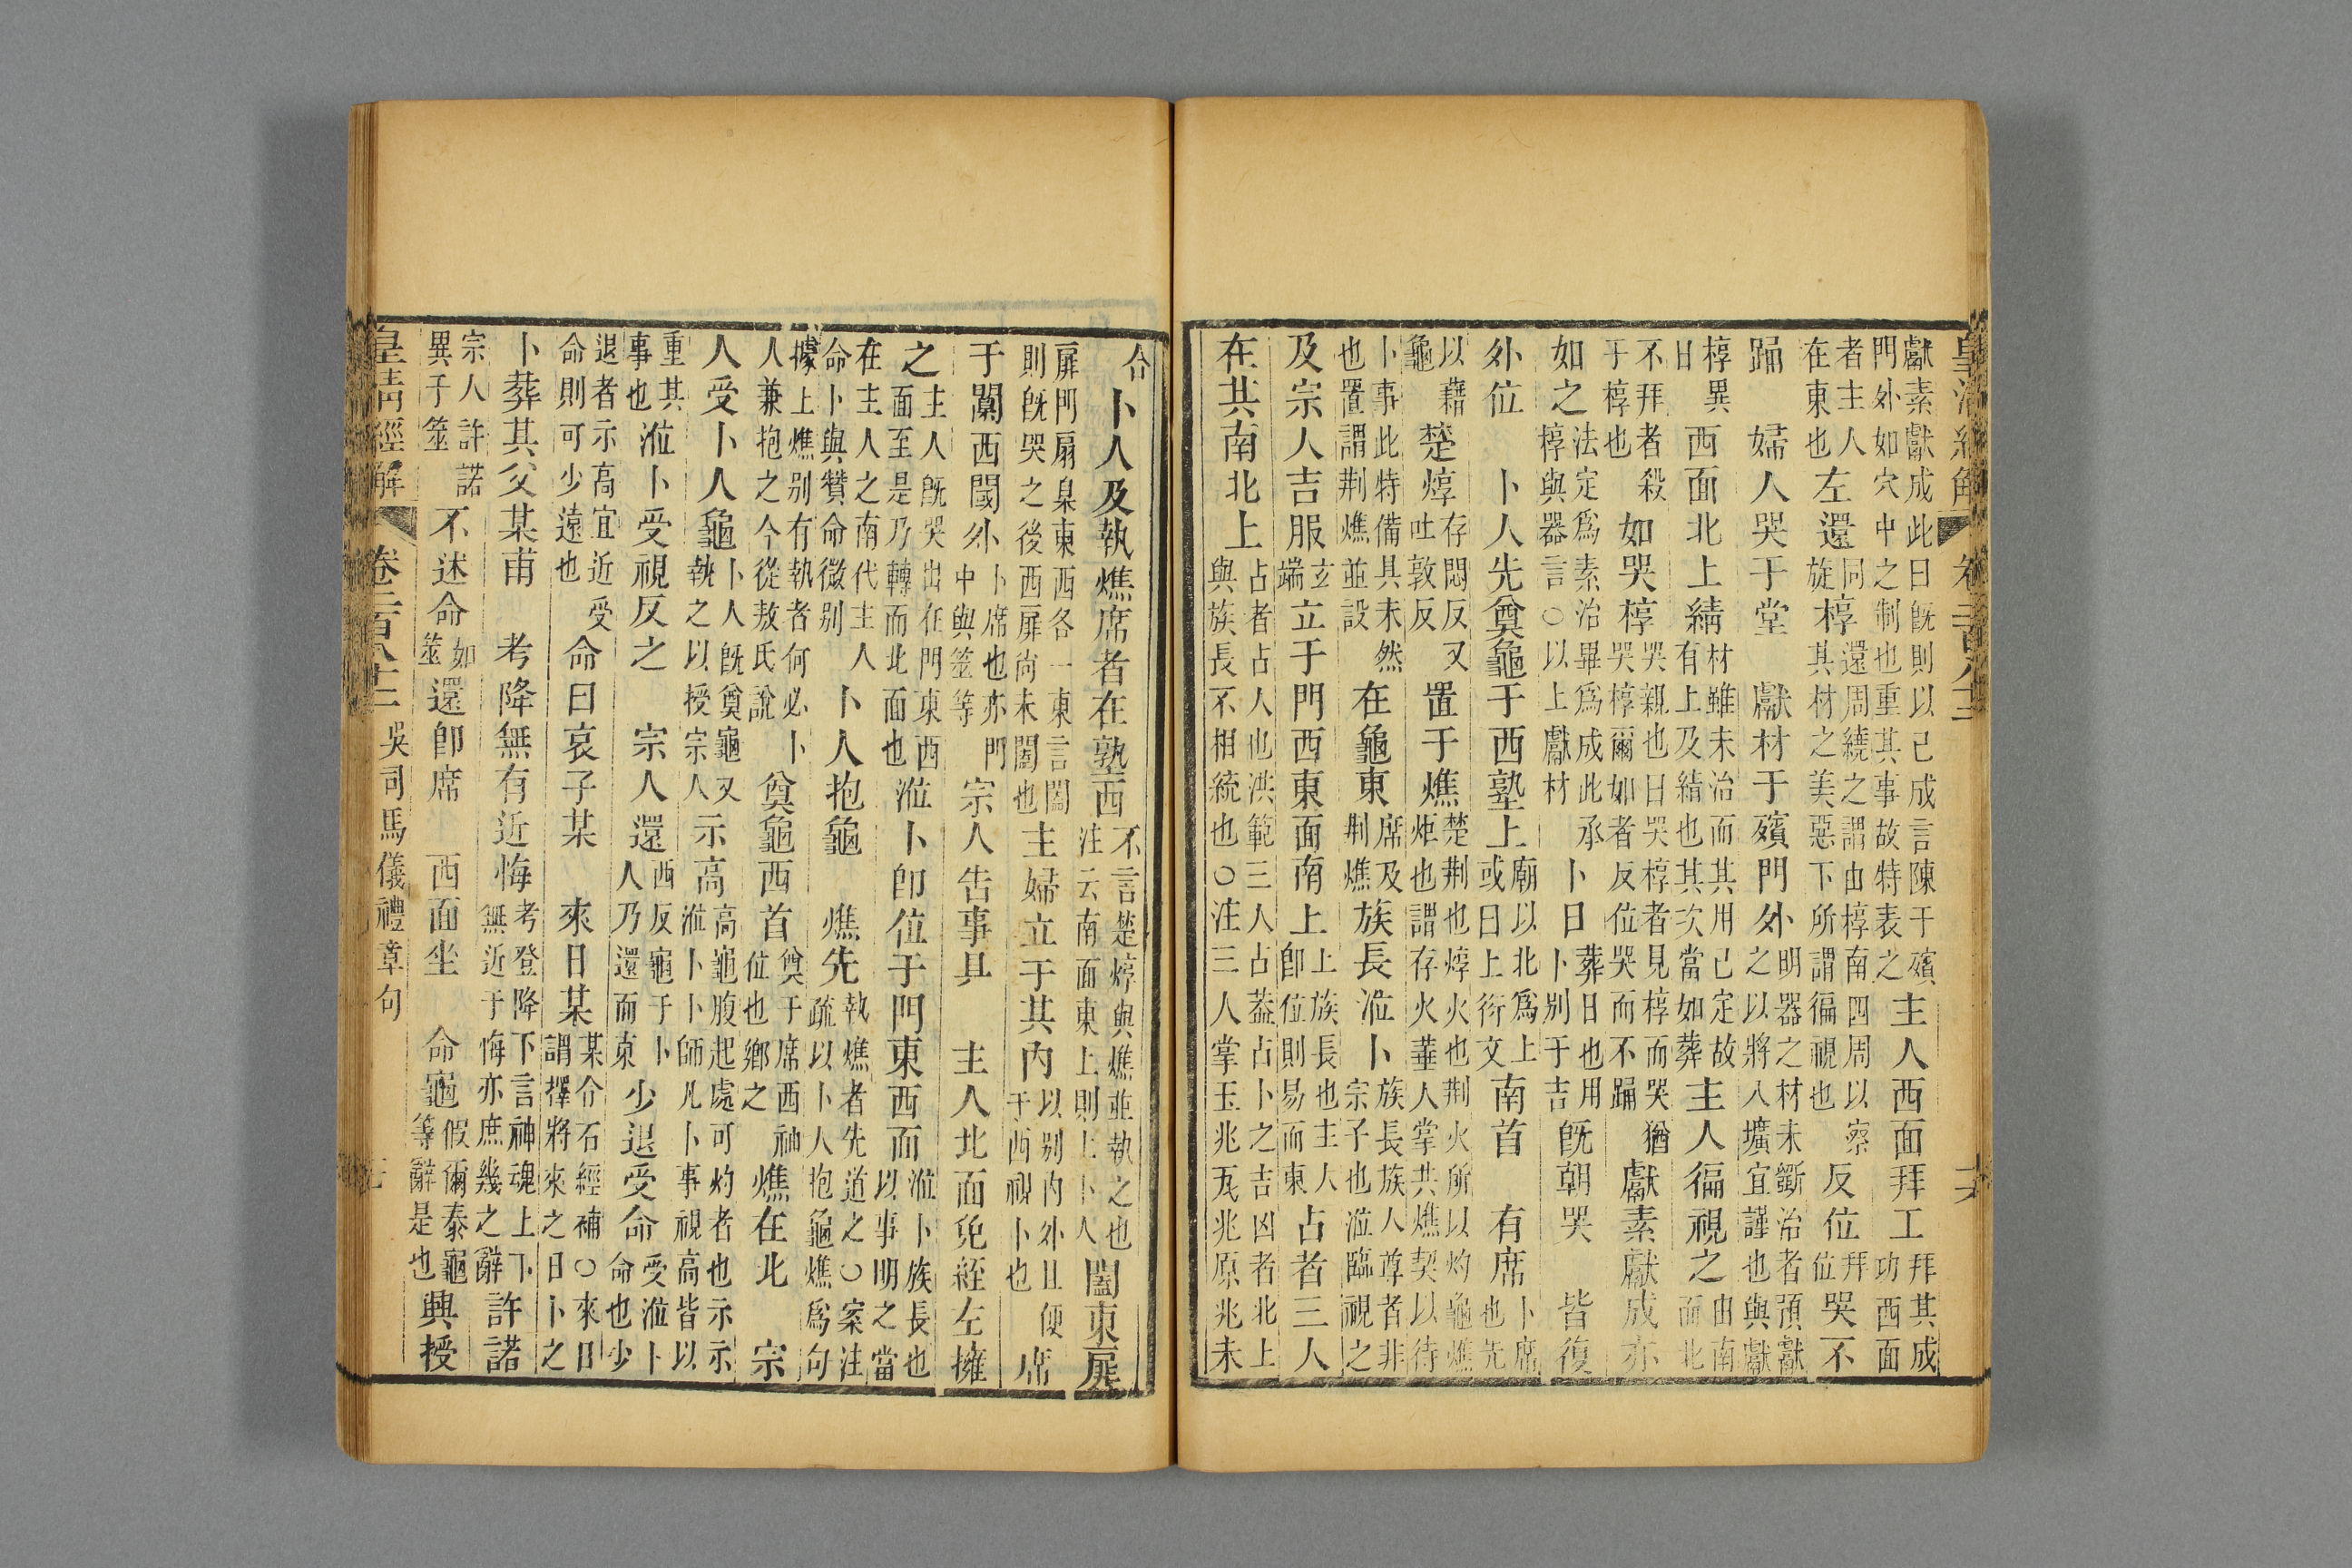 皇清經解 卷二百八十三 十六
獻素獻成此曰旣則以已成言陳于殯門外如穴中之制也重其事故特表之主人西面拜工拜其成功西面
者主人在東也左還同旋椁還周繞之謂由椁南四周以察其材之美惡下所謂徧視也反位拜位哭不
踊 婦人哭于堂 獻材于殯門外明器之材未斵治者預獻之以將入壙宜謹也與獻
椁異日西面北上綪材雖未治而其用已定故有上及綪也其次當如葬主人徧視之由南而北
不拜者殺于椁也如哭椁哭親也曰哭椁者見椁而哭猶哭椁爾如者反位哭而不踊獻素獻成亦
如之法定爲素治畢爲成此承椁與器言○以上獻材卜日葬日也用卜别于吉旣朝哭 皆復
外位 卜人先奠龜于西塾上廟以北爲上或曰上衍文南首 有席卜席也先
以藉龜楚焞存悶反又吐敦反置于燋楚荆也焞火也荆火所以灼龜燋炬也謂存火菙人掌共燋契以待
卜事此特備具未然也置謂荆燋並設在龜東席及荆燋族長涖卜族長族人尊者非宗子也涖臨視之
及宗人吉服玄端立于門西東面南上上族長也主人卽位則易而東占者三人
在其南北上占者占人也洪範三人占葢占卜之吉凶者北上與族長不相統也○注三人掌玉兆瓦兆原兆未
合卜人及執燋席者在塾西不言楚焞與燋並執之也注云南面東上則上卜人闔東扉
扉門扇臬東西各一東言闔則旣哭之後西扉尚未闔也主婦立于其內以别內外且便于西視卜也席
于闑西閾外卜席也亦門中與筮等宗人告事具 主人北面免絰左擁
之主人旣哭出在門東西面至是乃轉而北面也涖卜卽位于門東西面涖卜族長也以事明之當
在主人之南代主人命卜與贊命微别卜人抱龜 燋先執燋者先道之○案注疏以卜人抱龜燋爲句
據上燋别有執者何必卜人兼抱之今從敖氏說奠龜西首奠于席西神位也鄉之燋在北 宗
人受卜人龜卜人旣奠龜又執之以授宗人示高高龜腹起處可灼者也示示涖卜卜師凡卜事視高皆以
重其事也涖卜受視反之 宗人還西反龜于卜人乃還而東少退受命受涖卜命也少
退者示高宜近受命則可少遠也命曰哀子某 來日某某石經補○來日謂擇將來之日卜之
卜葬其父某甫 考降無有近悔考登降下言神魂上下無近于悔亦庶幾之辭許諾
宗人許諾異于筮不述命如筮還卽席 西面坐 命龜假爾泰龜等辭是也興授
皇清經解 卷二百八十三 吳司馬儀禮章句